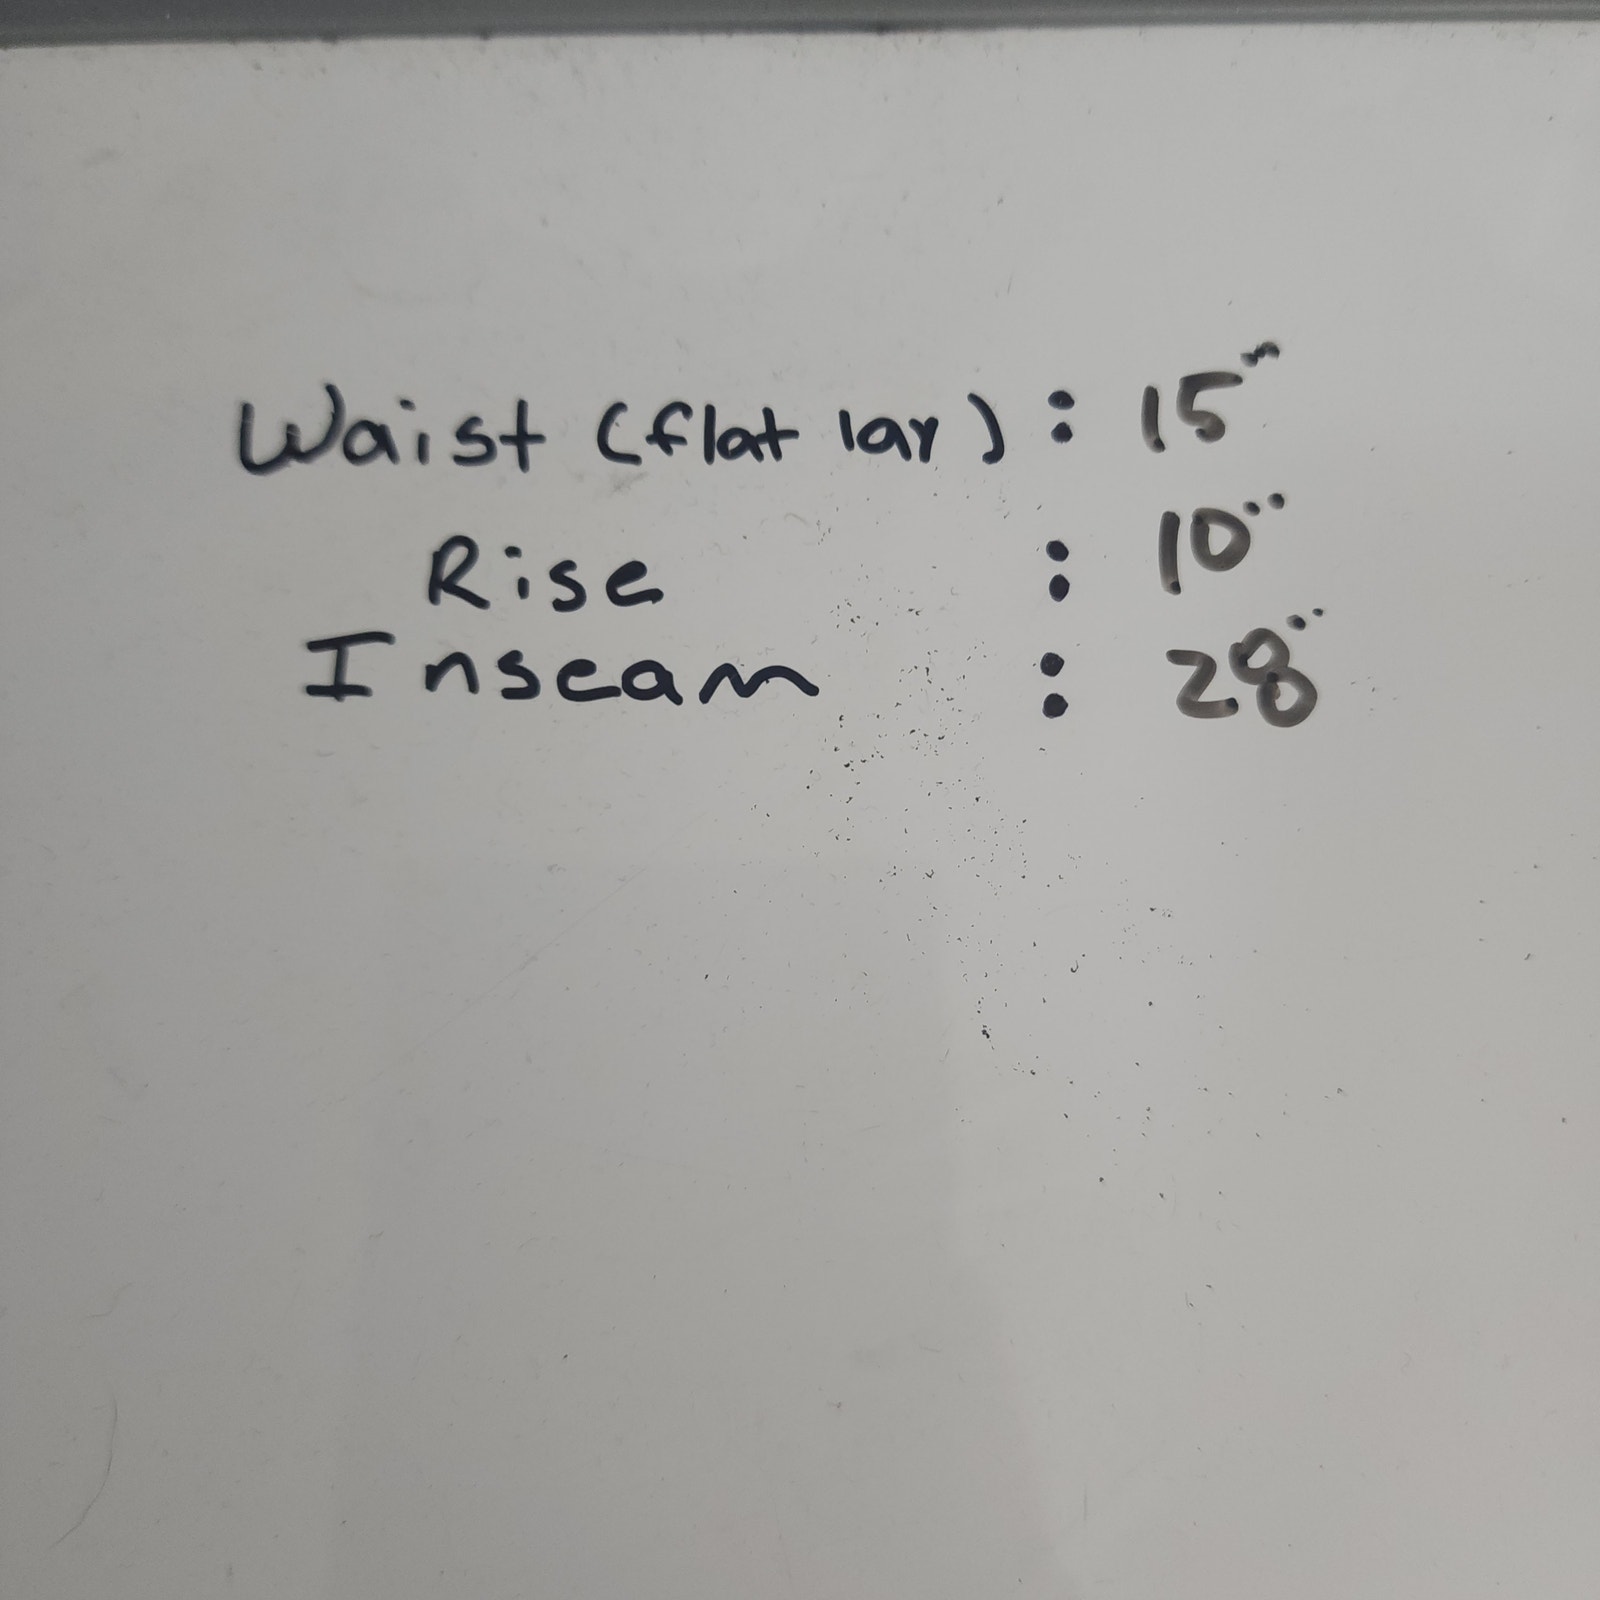 Waist (flat lay) : 15"
Rise : 10"
Inseam : 28"